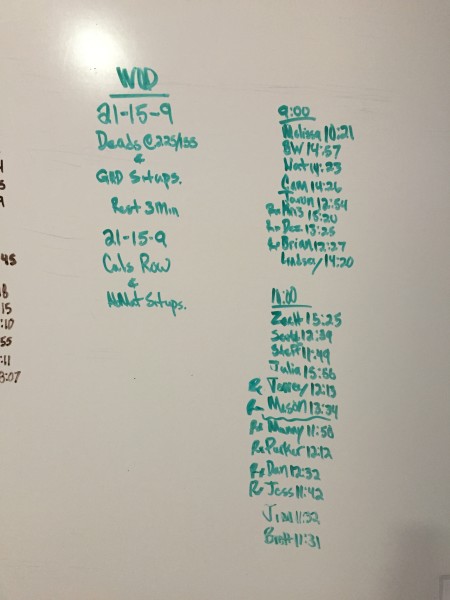 WOD
21-15-9
Deads @ 225/155
&
GHD Situps.
Rest 3 Min
21-15-9
Cals Row
&
AbMat Situps.
9:00
Melissa 10:21
BW 14:57
Nat 14:23
Cam 14:26
12:54
Rx Kris 15:20
Rx Dez 13:25
Rx Brian 12:27
Lindsey 14:20
11:00
Zach 15:25
Scott 12:39
Steff 11:49
Julia 15:56
Rx 12:13
Rx Mason 13:34
Rx Manny 11:58
Rx Parker 12:12
Rx Dan 12:32
Rx Jess 11:42
Jim 11:32
Brett 11:31
48
15
:10
55
:11
3:07